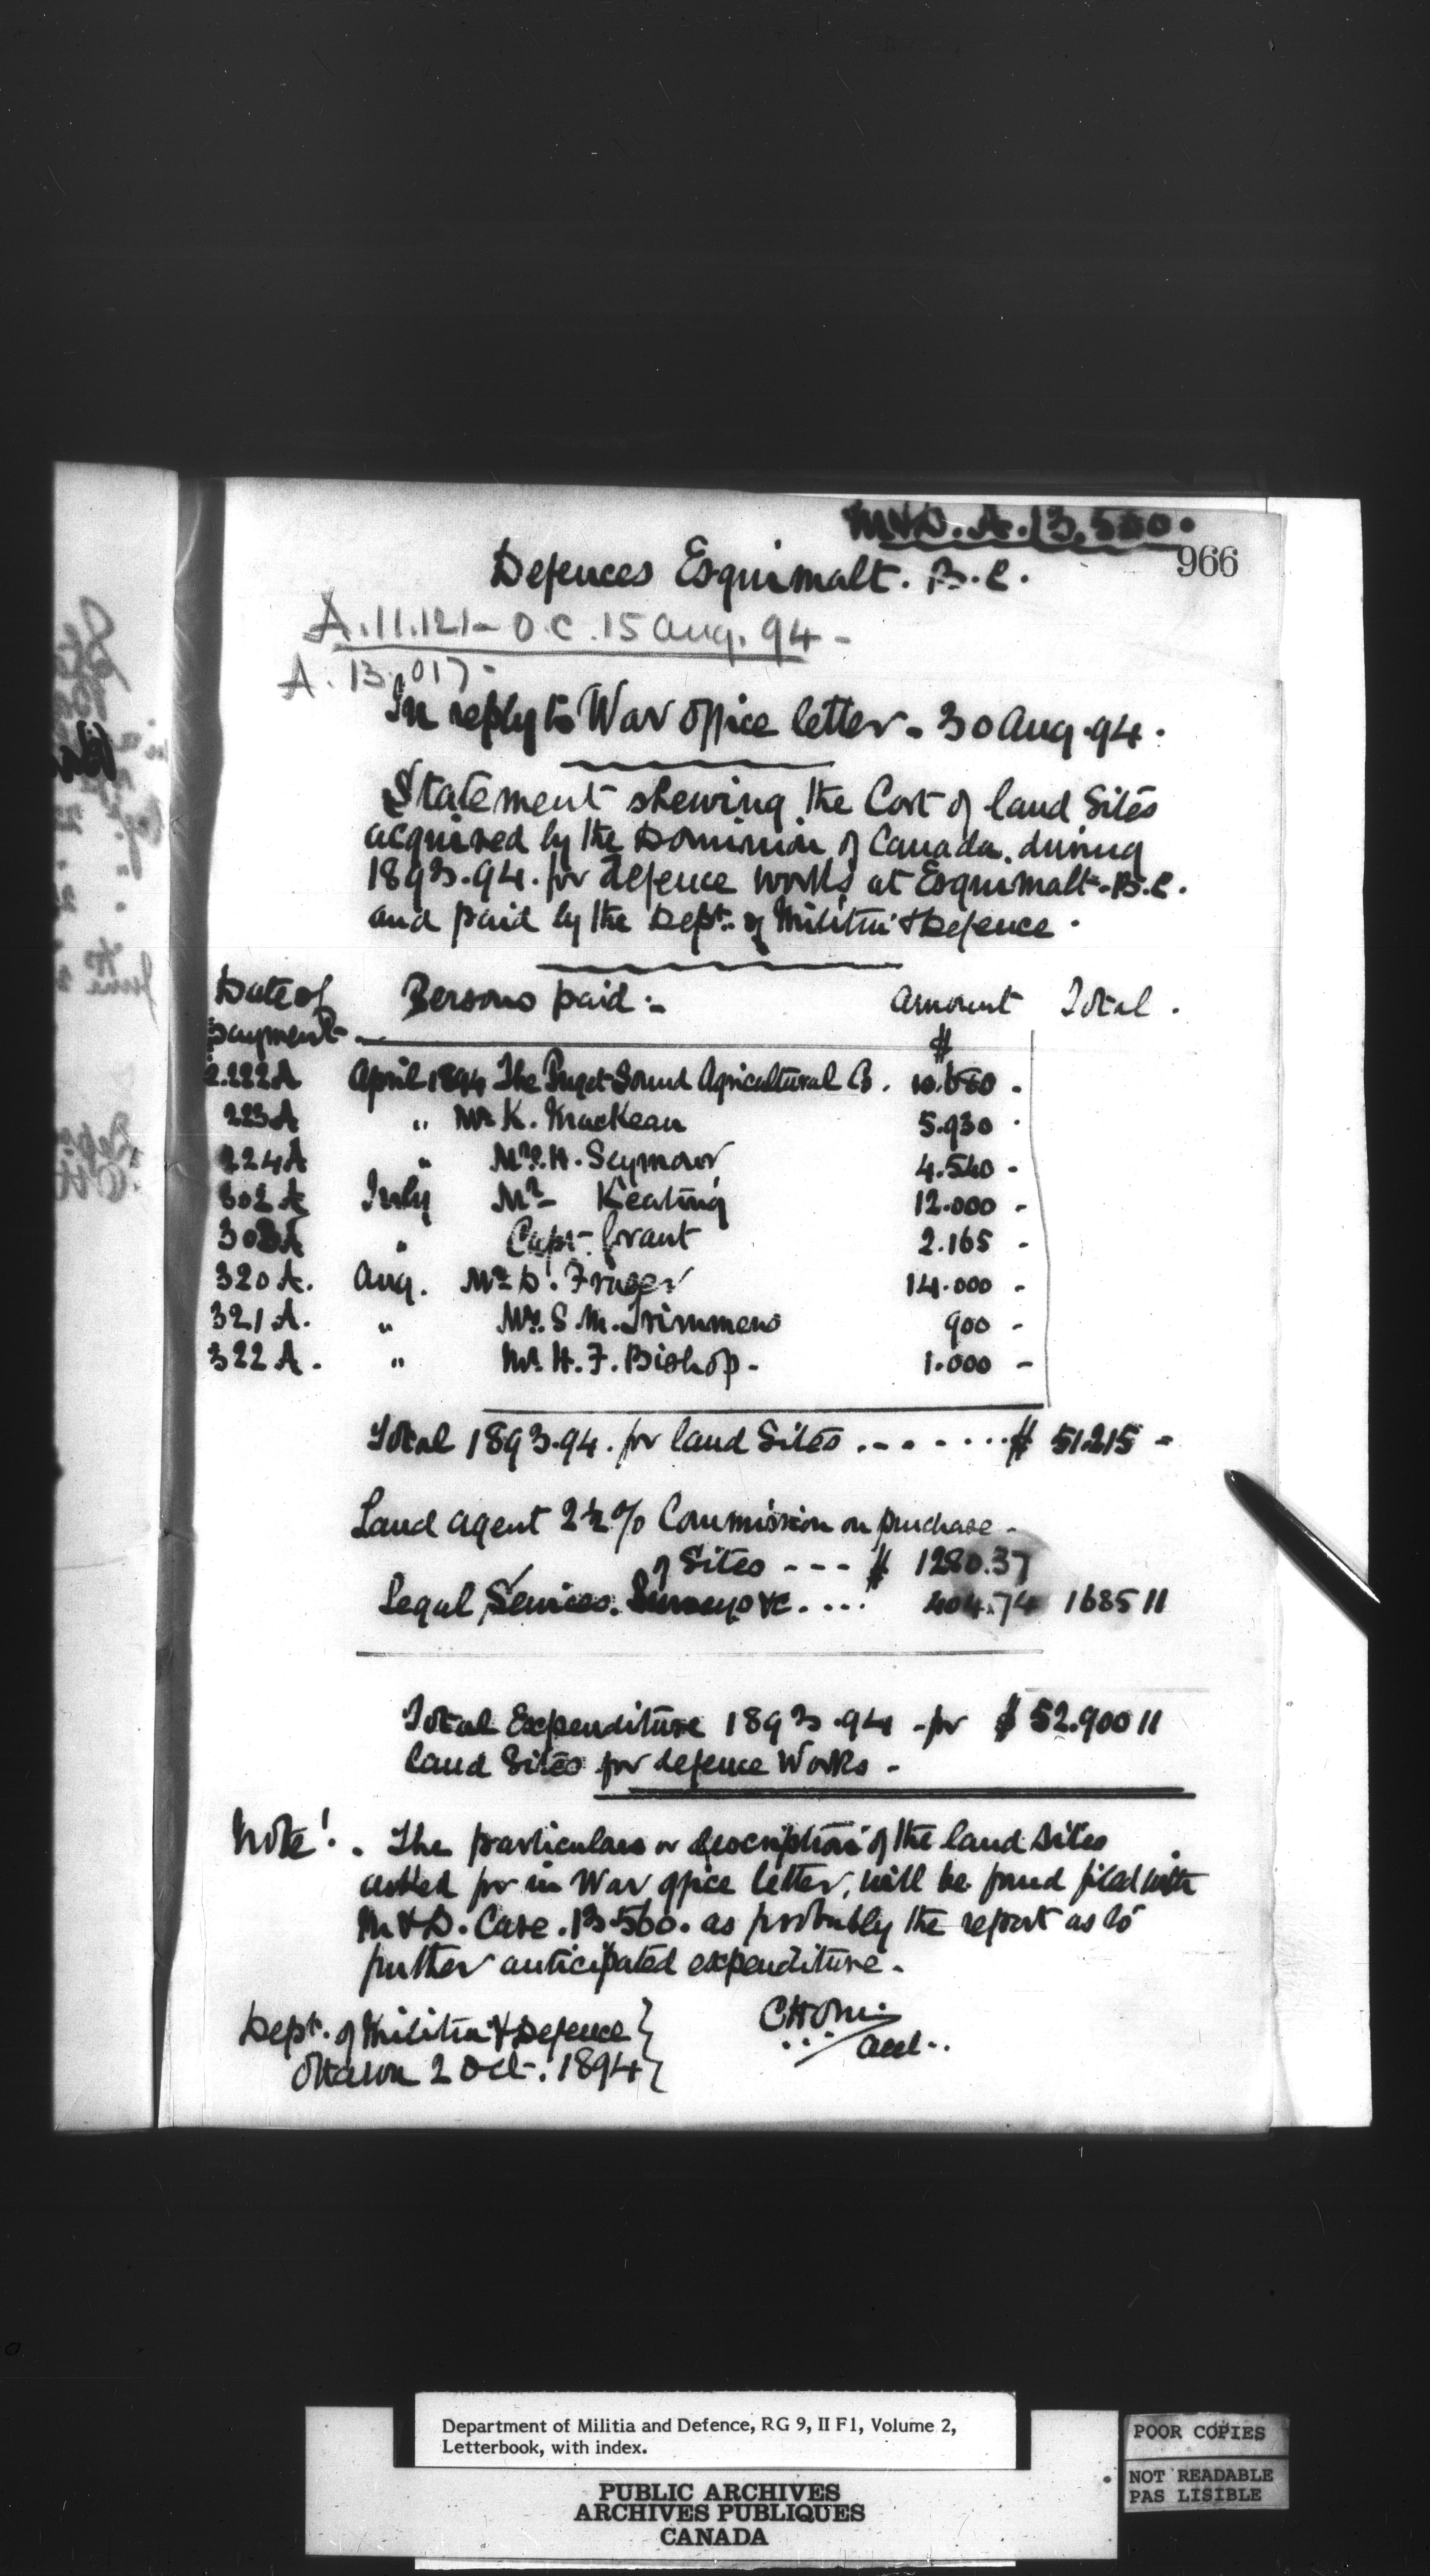 M&D. A. 13.560.
966
Defences Esquimalt. B.C.
A. 11.121 - O.C. 15 Aug. 94 -
A. 13.017 -
In reply to War Office letter - 30 Aug. 94.
Statement shewing the Cost of land Sites
acquired by the Dominion of Canada, during
1893.94. for defence works at Esquimalt - B.C.
and paid by the Dept. of Militia & Defence.
Date of payment Persons paid :- Amount Total.
$
222A April 1894 The Puget Sound Agricultural Co. 10.680 -
223A " Mr K. MacKean 5.930 -
224A " H. Seymour 4.540 -
302A July Mr Keating 12.000 -
303A " Capt. Grant 2.165 -
320A. Aug. Mr D. Fraser 14.000 -
321A. " S.M. Trimmens 900 -
322A. " Mr. H.F. Bishop - 1.000 -
Total 1893.94. for land Sites ....... $ 51.215 -
Land Agent 2½% Commission on purchase -
of Sites --- $ 1280.37
Legal Services. Surveys &c. .... 404.74 1685 11
Total Expenditure 1893.94 - for $ 52.900 11
land Sites for defence Works -
Note! . The particulars or description of the land sites
asked for in War Office letter, will be found filed with
M&D. Case. 13.560. as probably the report as to
further anticipated expenditure -
Dept. of Militia & Defence }
Ottawa 2 Oct. 1894 }
Acct..
Department of Militia and Defence, RG 9, II F1, Volume 2,
Letterbook, with index.
PUBLIC ARCHIVES
ARCHIVES PUBLIQUES
CANADA
POOR COPIES
NOT READABLE
PAS LISIBLE